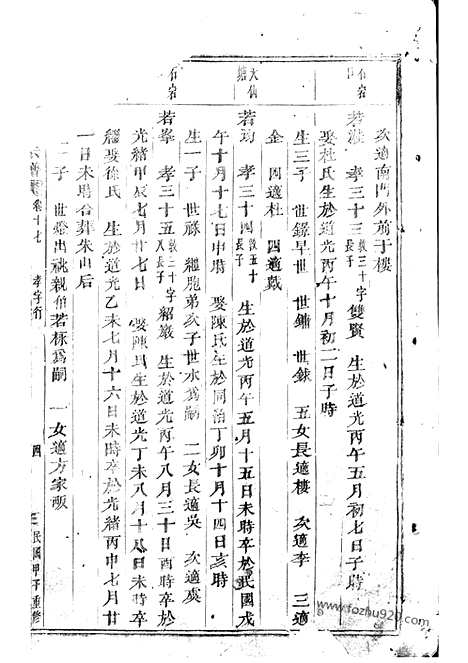 次適南門外前于樓
石宕
若 孝三十三 敦三十字 長子 雙賢 生於道光丙午五月初七日子時
娶杜氏生於道光丙午十月初二日子時
生三子 世錄早世 世鏞 世銶 五女長適樓 次適李 三適
金 四適杜 四適戴
大 塘
若 孝三十四 敦五十 生於道光丙午五月十五日未時卒於民國戊
午十月十七日申時 娶陳氏生於同治丁卯十月十四日亥時
生一子 世 繼胞弟次子世水為嗣 二女長適吳 次適虞
石宕
若峯 孝三十五 敦三十字 長子 紹巖 生於道光丙午八月三十日酉時卒於
光緒甲辰七月廿七日 娶陳氏生於道光丁未八月十 日未時卒
繼娶徐氏 生於道光乙未七月十六日未時卒於光緒丙申七月廿
一日未時合葬朱山后
二子 世 出祧親伯若 為嗣 一女適方家畈
宗譜 卷十七 孝字行 四 民國甲子重修
www.fozhu920.com